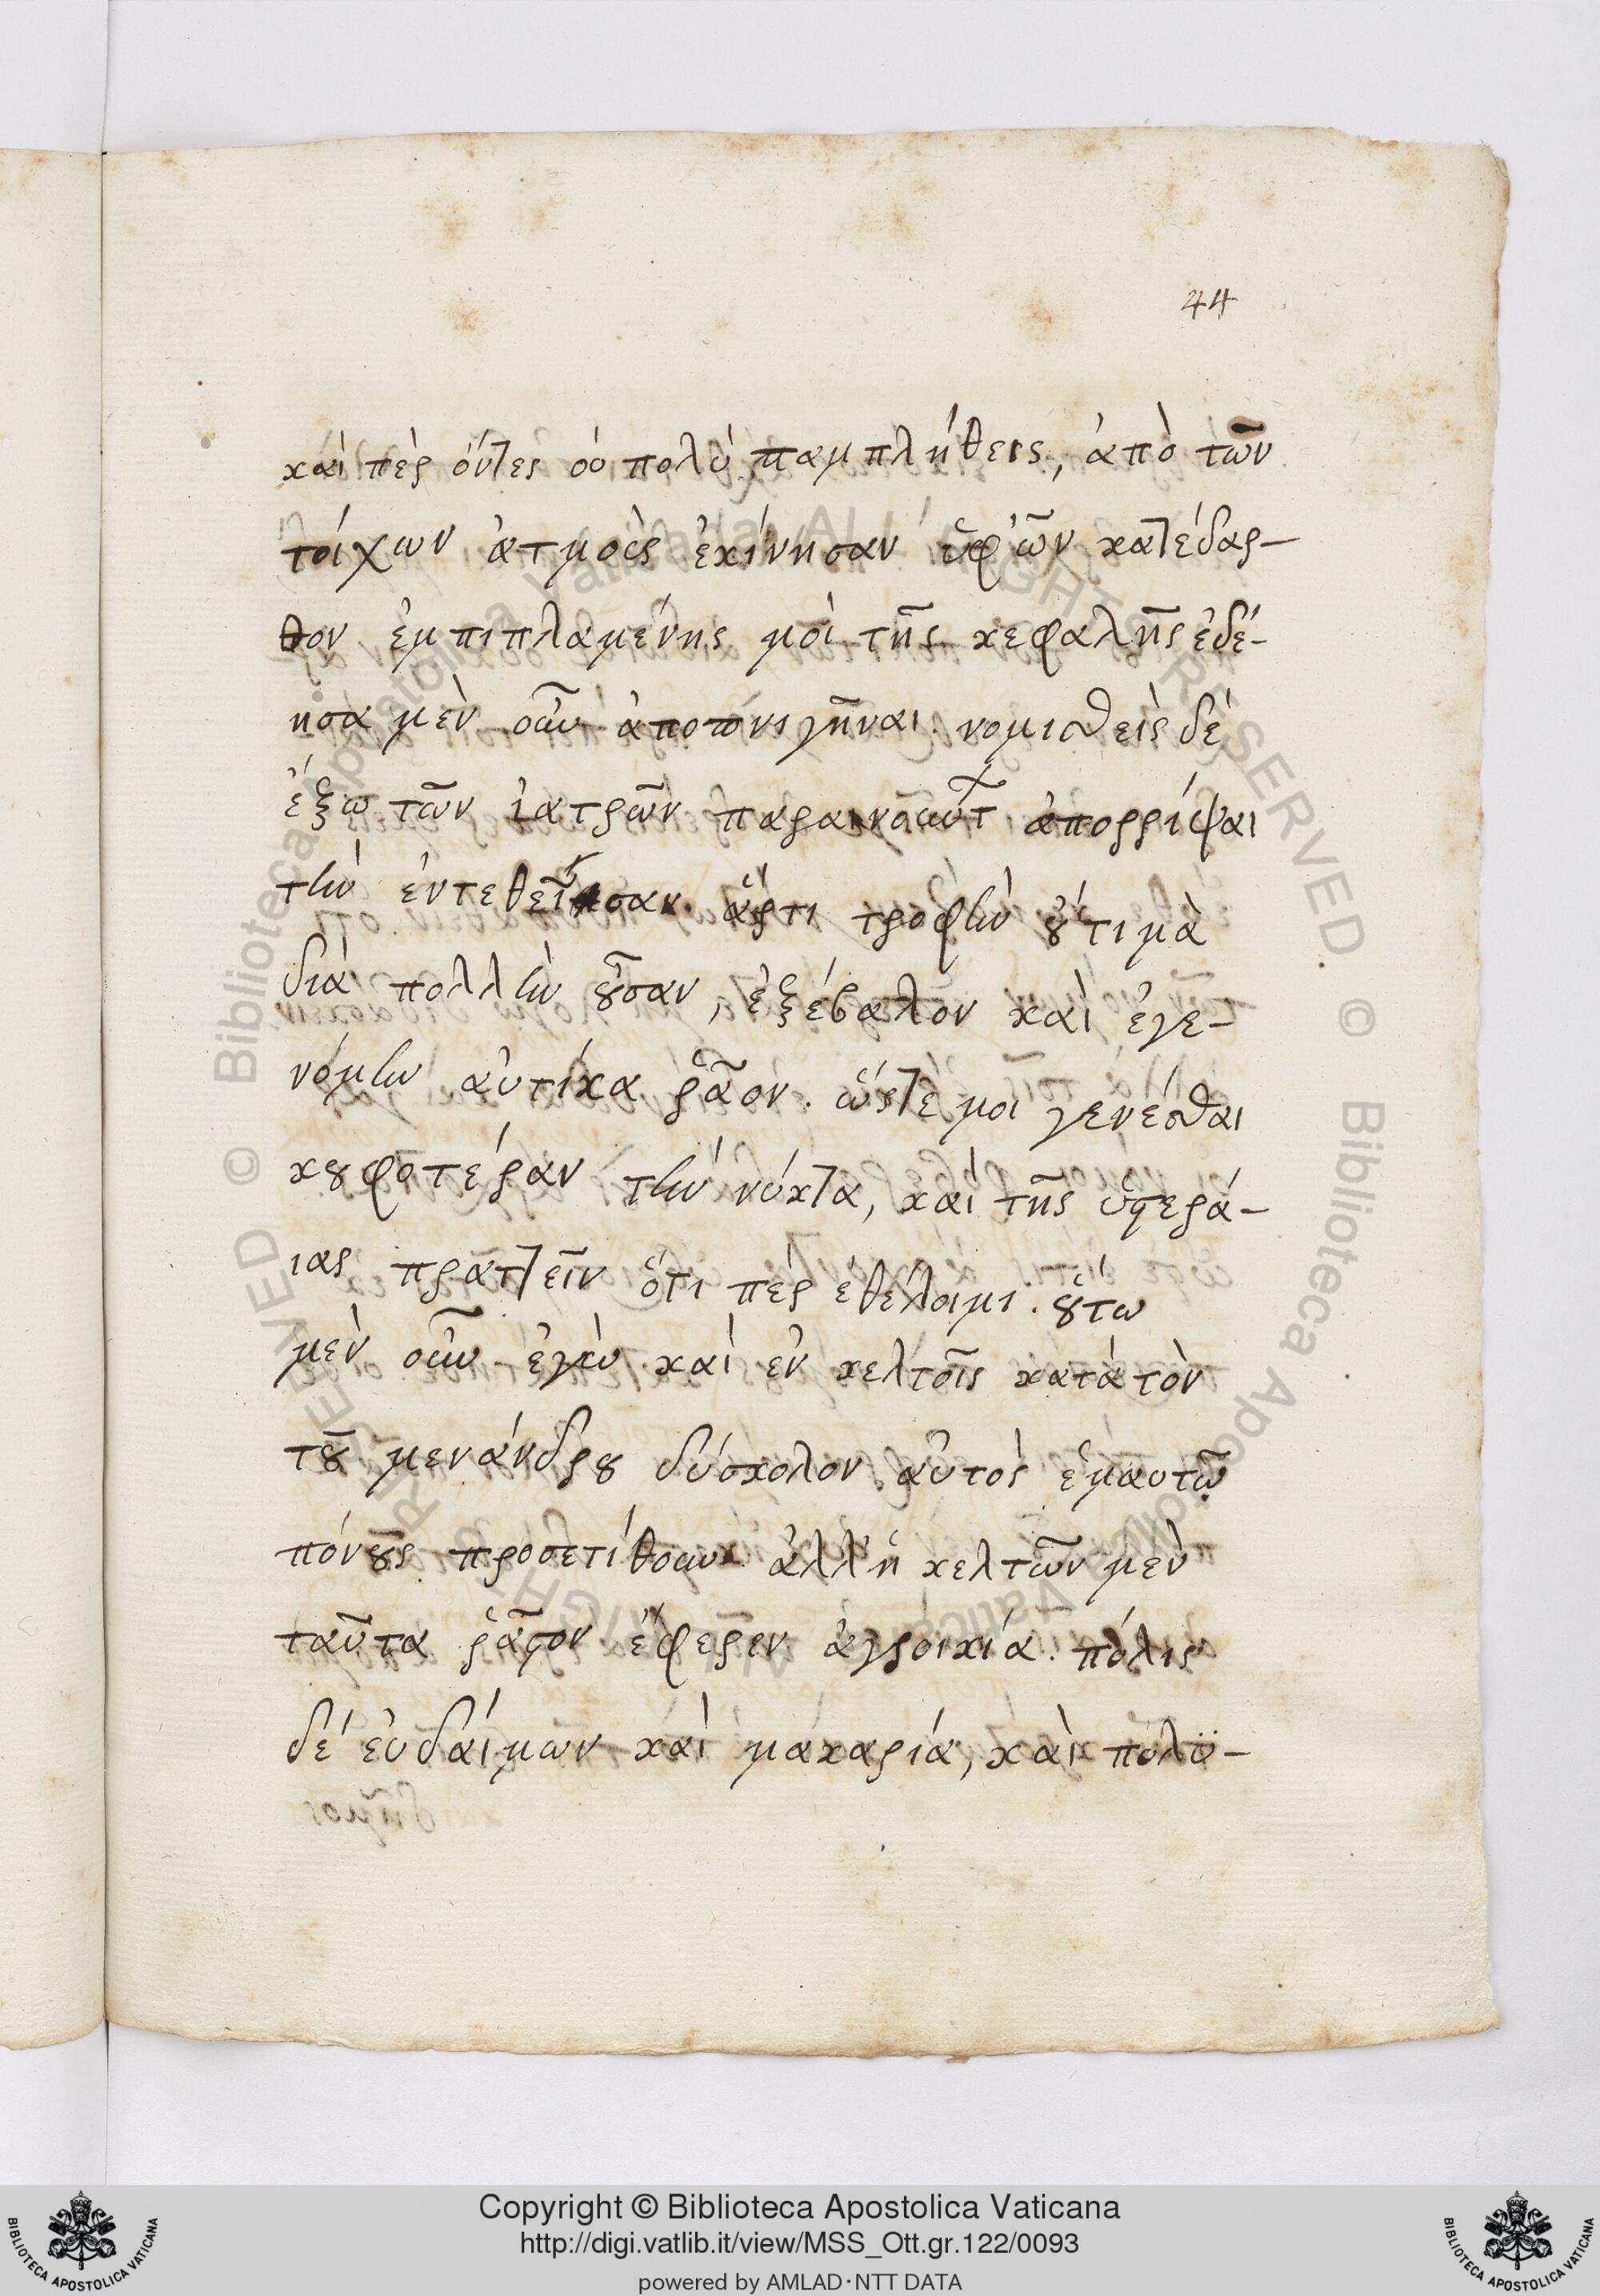 44
καὶ πὲρ ὄντες οὐ πολὺ παμπλήθεις, ἀπὸ τῶν
τοίχων ἀτμοὺς ἐκίνησαν ὑφ' ὧν κατέδαρ-
θον ἐμπιπλαμένης μοὶ τῆς κεφαλῆς ἐδέ-
ησα μὲν οὖν ἀποπνιγῆναι. νομισθεὶς δὲ
ἔξω τῶν ἰατρῶν παραινούντ ἀπορρίψαι
τὴν ἐντεθεῖσαν ἄρτι τροφὴν οὔτι μὰ
δία πολλὴν οὖσαν, ἐξέβαλον καὶ ἐγε-
νόμην αὐτίκα ῥᾶον. ὥστε μοι γενέσθαι
κουφοτέραν τὴν νύκτα, καὶ τῆς ὑστερά-
ιας πρατ1εῖν ὅτι πὲρ ἐθέλοιμι. οὕτω
μὲν οὖν ἐγὼ καὶ ἐν κελτοῖς κατὰ τὸν
τοῦ μενάνδρου δύσκολον αὐτὸς ἐμαυτῷ
πόνους προσετίθουν ἀλλ' ἡ κελτῶν μὲν
ταῦτα ῥᾷστον ἔφερεν ἀγροικία. πόλις
δέ εὐδαίμων καὶ μακαρία, καὶ πολϋ-
Copyright © Biblioteca Apostolica Vaticana
http://digi.vatlib.it/view/MSS_Ott.gr.122/0093
powered by AMLAD·NTT DATA
BIBLIOTECA APOSTOLICA VATICANA
BIBLIOTECA APOSTOLICA VATICANA